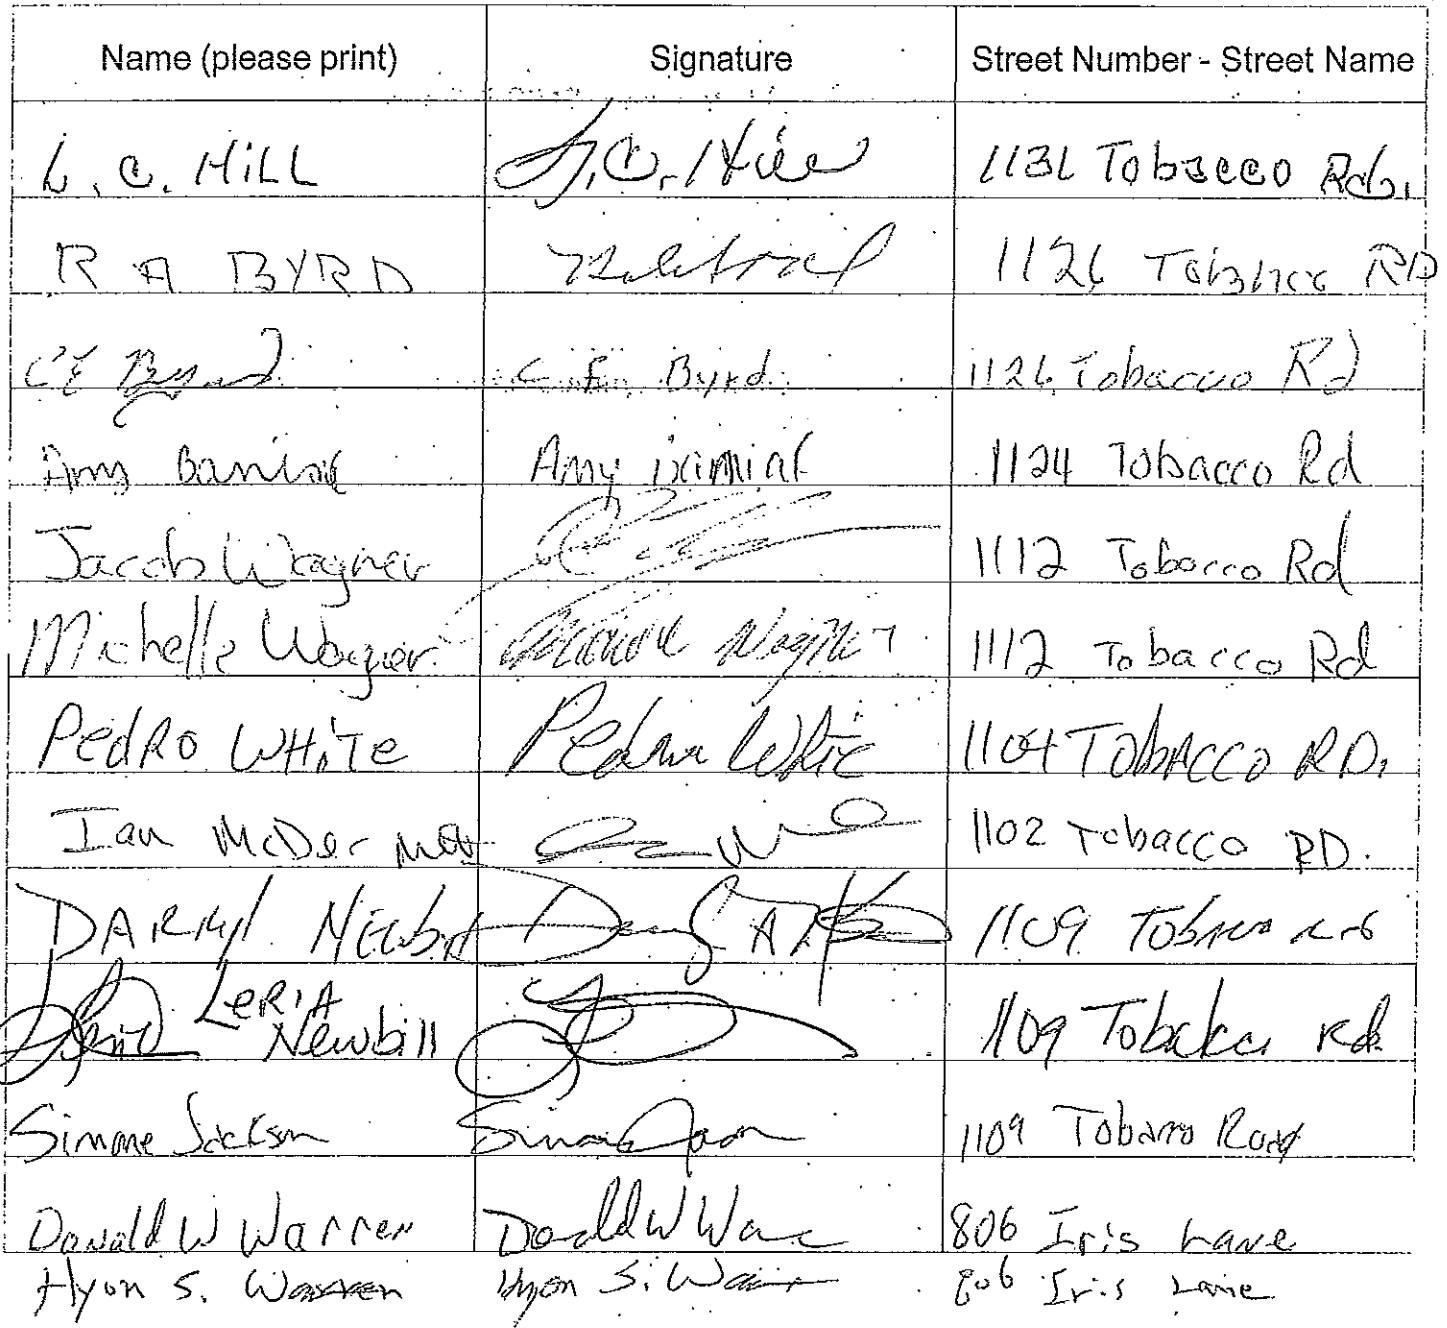 Name (please print) Signature Street Number - Street Name
L. C. HILL L.C. Hill 1131 Tobacco Rd.
R A BYRD 1126 Tobacco RD
CE Byrd C. E. Byrd 1126 Tobacco Rd
Amy Amy 1124 Tobacco Rd
Jacob Wagner 1112 Tobacco Rd
Michelle Wagner Michelle Wagner 1112 Tobacco Rd
PedRO WHiTe Pedro White 1104 TobAcco RD.
Ian McDermott 1102 Tobacco RD.
DARRYl 1109
LeRIA
Newbill 1109 Rd.
Simone Jackson Simone Jackson 1109 Tobacco Road
Donald W Warren Donald W Warren 806 Iris Lane
Hyon S. Warren Hyon S. Warren 806 Iris Lane